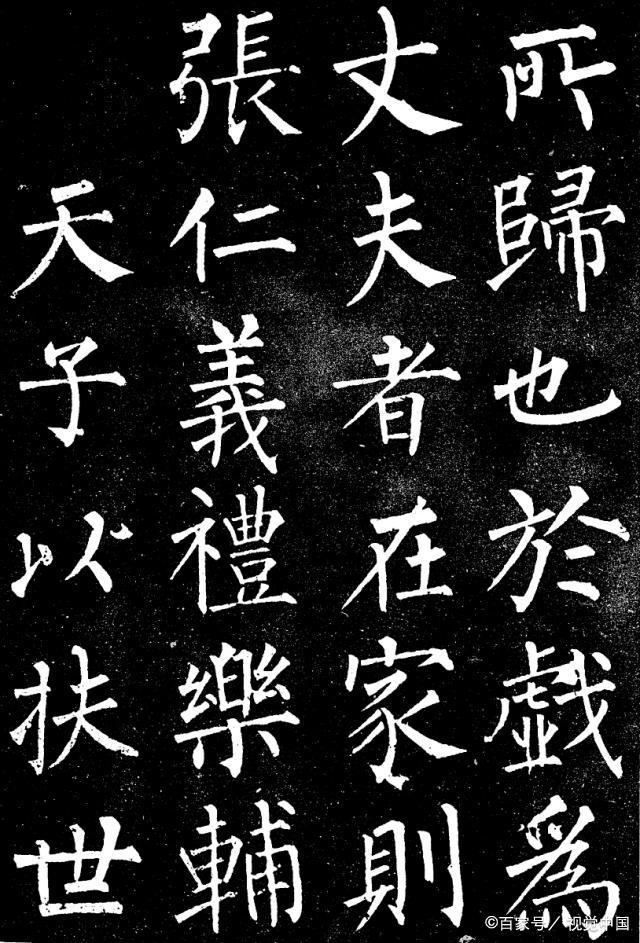 所歸也於戲為
丈夫者在家則
張仁義禮樂輔
天子以扶世
©百家号／视觉中国